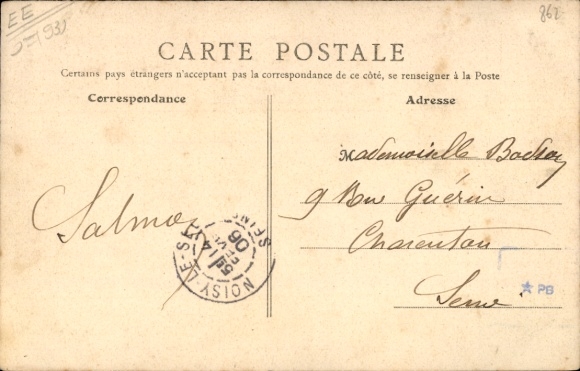 EE
862
CARTE POSTALE
Certains pays étrangers n'acceptant pas la correspondance de ce côté, se renseigner à la Poste
Correspondance
Adresse
Mademoiselle
9 Rue Guérin
Charenton
Seine
NOISY-LE-SEC
SEINE
06
PB